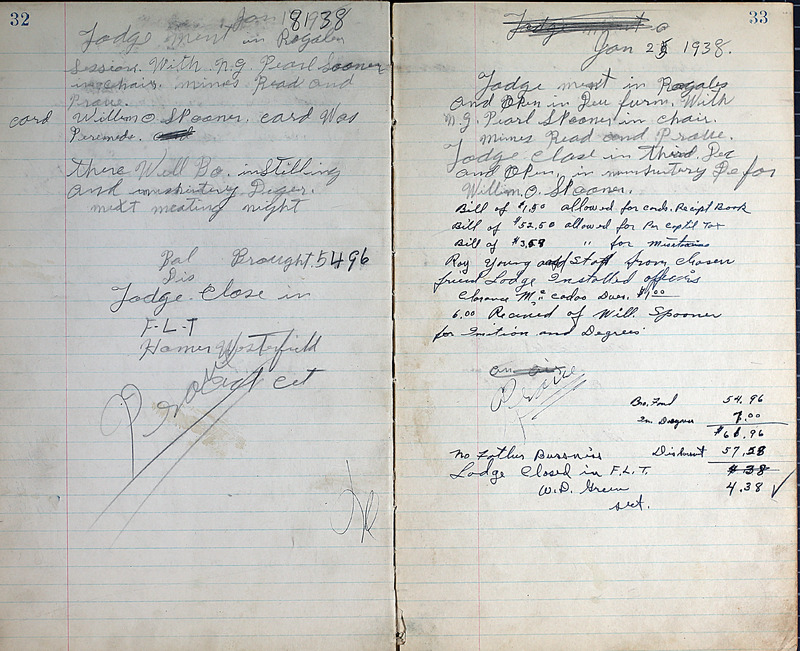 32
Jan 18 1938
Lodge ment in Rogales
Session. With N.G. Pearl Sooner
in chair, mines Read and
Prove.
card Willim O. Spooner. card Was
Peremede.
there Well Bo. instilling
and
mixt meating night
Bal Brought. 5496
Dis
Lodge. Close in
F-L-T
Homer Westerfield
33
Jan 25 1938.
Lodge ment in Rogales
and Open in Deu furm. With
N.G. Pearl Spooner in chair.
mines Read and Prove.
Lodge Close in Third Dee
and Open, in Defor
Willim. O. Spooner.
Bill of $1.50 allowed for cards. Recipt Book
Bill of $52.50 allowed for Per captil Tax
Bill of $3.58 " for
Roy Young and Staff from Chosen
friend Lodge Installed officers
Clarance Mc cadoo Dues. $1.00
6.00 Recived of Will. Spooner
for Inition and Degrees
Bro. Ford 54.96
7.00
$61.96
No Futher Bussniss Disburst 57.58
Lodge Closed in F.L.T. $ 38
W.D. Green 4.38 ✓
sect.